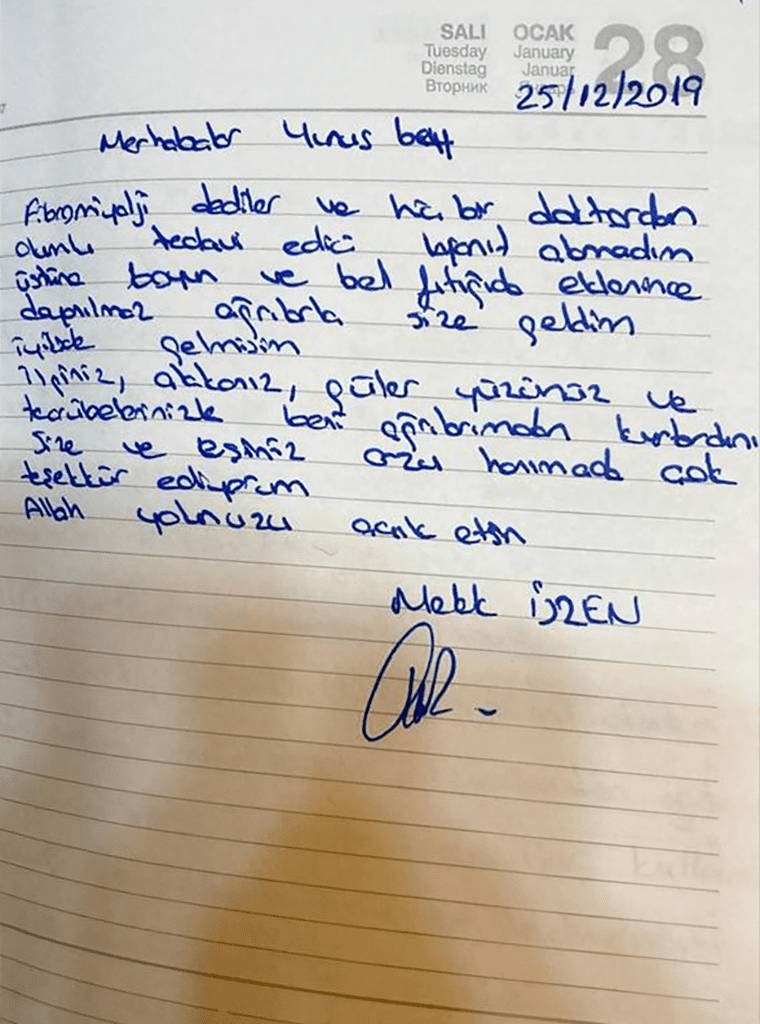 SALI OCAK 28
Tuesday January
Dienstag Januar
Вторник
25/12/2019
Merhabalar Yunus bey
Fibromiyalji dediler ve hiç bir doktordan
olumlu tedavi edici almadım
üstüne boyun ve bel fıtığıda eklenince
dayanılmaz ağrılarla size geldim
iyikide gelmişim
İlginiz, alakanız, güler yüzünüz ve
tecrübelerinizle beni ağrılarımdan kurtardınız
Size ve eşiniz arzu hanımada çok
teşekkür ediyorum
Allah yolunuzu açık etsin
Melek İŞZEN